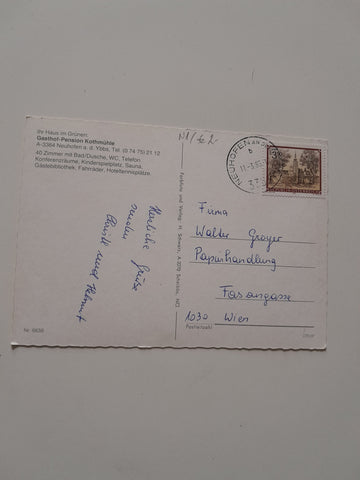 Ihr Haus im Grünen:
Gasthof-Pension Kothmühle
A-3364 Neuhofen a. d. Ybbs, Tel. (0 74 75) 21 12
40 Zimmer mit Bad/Dusche, WC, Telefon,
Konferenzräume, Kinderspielplatz, Sauna,
Gästebibliothek, Fahrräder, Hoteltennisplätze.
Herzliche Grüße
senden
und Helmut
Nr. 0638
Farbfoto und Verlag: H. Schwarz, A-3270 Scheibbs, NÖ
NEUHOFEN AN DER
b
Firma
Walter Greyer
Papierhandlung
Fasangasse
1030 Wien
Postleitzahl